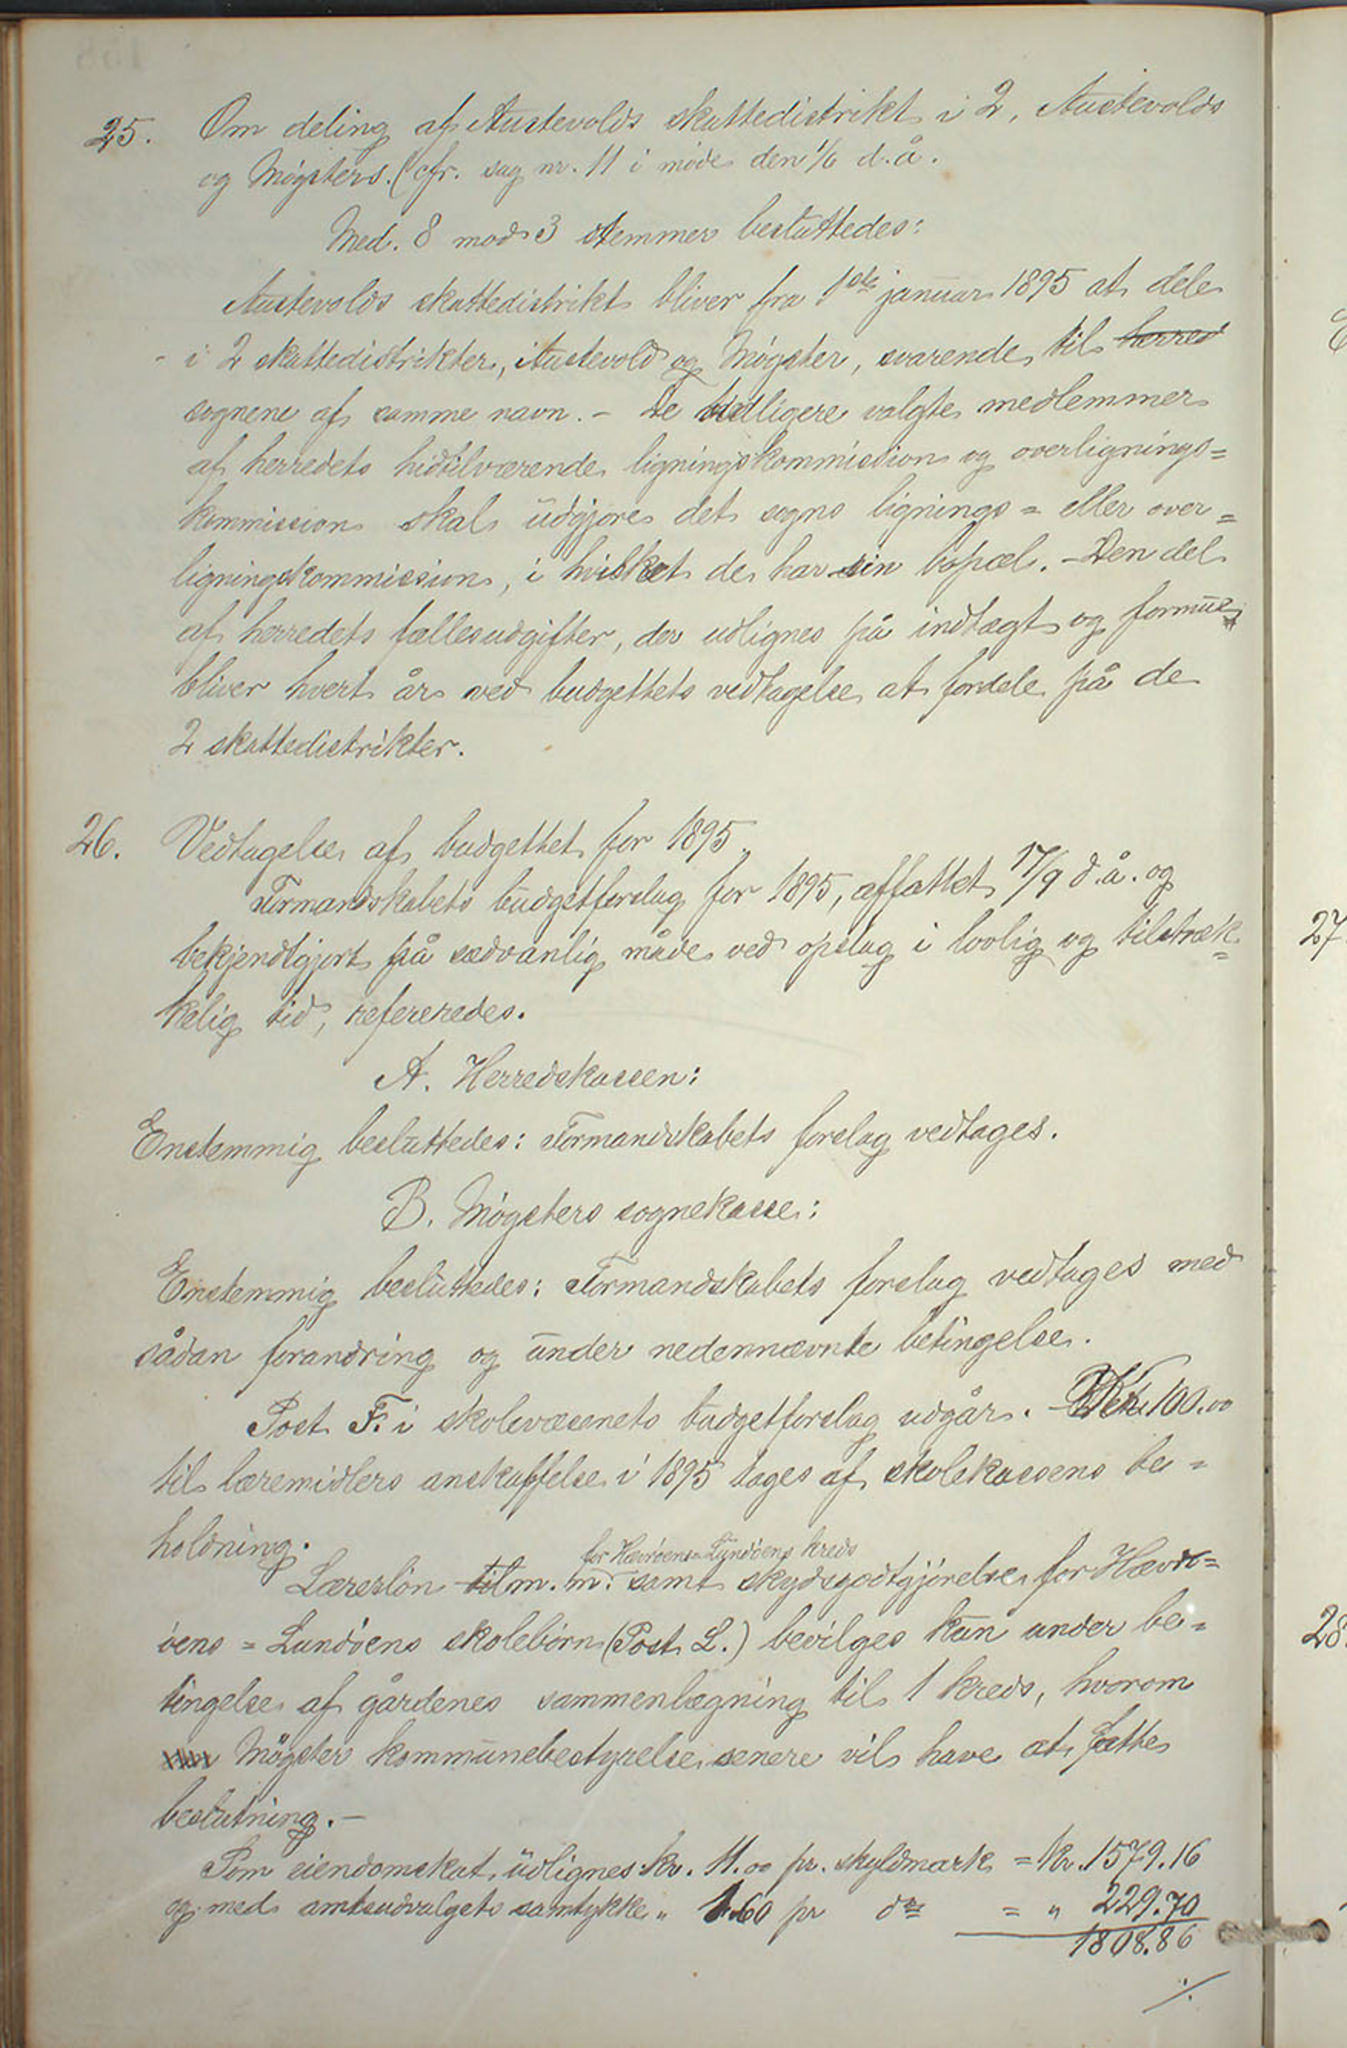 25. Om deling af Austevolds skattedistrikt i 2, Austevolds
og Møgsters. (cfr. sag nr. 11 i møde den 1/6 d.å.
Med. 8 mod 3 stemmer besluttedes:
Austevolds skattedistrikt bliver fra 1ste januar 1895 at dele
i 2 skattedistrikter, Austevold og Møgster, svarende til herred
sognene af samme navn. - De tidligere valgte medlemmer
af herredets hidtilværende ligningskommission og overlignings=
kommission skal udgjøre det sogns lignings= eller over=
ligningskommission, i hvilket de har sin bopæl. - Den del
af herredets fællesudgifter, der udlignes på indtægt og formue,
bliver hvert år ved budgettets vedtagelse at fordele på de
2 skattedistrikter.
26. Vedtagelse af budgettet for 1895.
Formandskabets budgetforslag for 1895, affattet 17/9 d.å. og
bekjendtgjort på sædvanlig måde ved opslag i lovlig og tilstræk=
kelig tid, refereredes.
A. Herredskassen:
Enstemmig besluttedes: Formandskabets forslag vedtages.
B. Møgsters sognekasse:
Enstemmig besluttedes: Formandskabets forslag vedtages med
sådan forandring og under nedennævnte betingelse.
Post F. i skolevæsenets budgetforslag udgår. Kr. 100.00
til læremidlers anskaffelse i 1895 tages af skolekassens be=
holdning.
for Hævrøens=Lundøens kreds
Lærerløn til m. m. samt skydsgodtgjørelse for Hævr=
øens=Lundøens skolebørn (Post L.) bevilges kun under be=
tingelse af gårdenes sammenlægning til 1 kreds, hvorom
Møgster kommunebestyrelse senere vil have at fatte
beslutning. -
Som eiendomskat udlignes kr. 11.00 pr. skyldmark = Kr. 1579.16
og med amtsudvalgets samtykke " 1.60 pr do = " 229.70
1808.86
./.
27.
28.